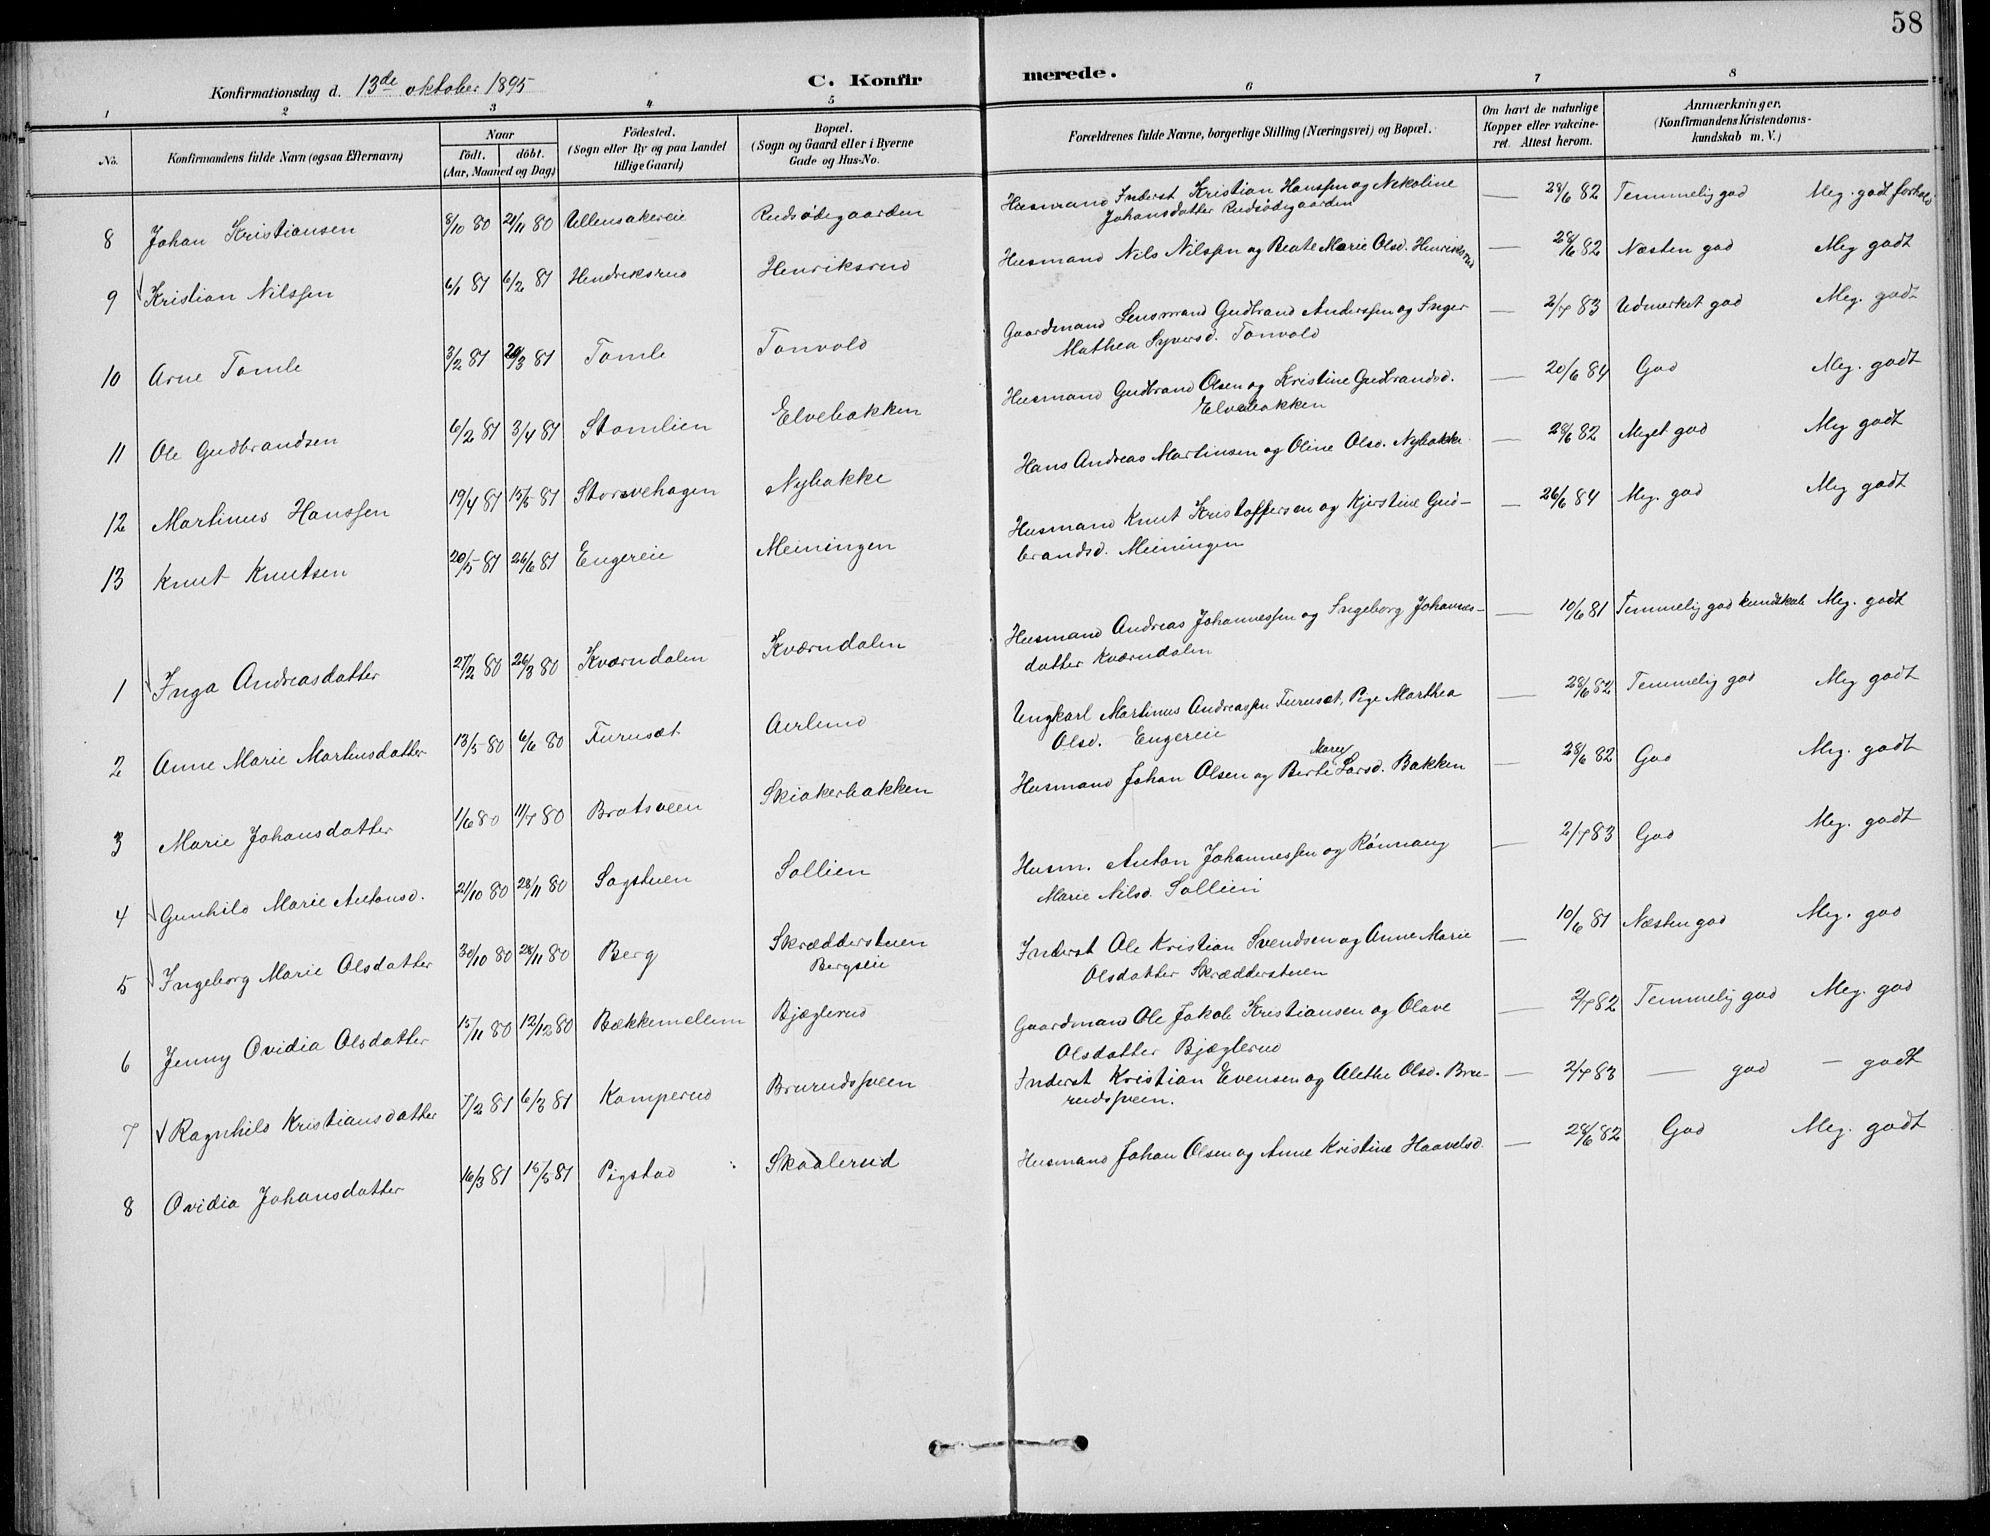 58
Konfirmationsdag d. 13de oktober 1895
C. Konfirmerede.
1 2 3 4 5 6 7 8
No.
Konfirmandens fulde Navn (ogsaa Efternavn)
Naar
födt. döbt.
(Aar, Maaned og Dag)
Födested.
(Sogn eller By og paa Landet
tillige Gaard)
Bopæl.
(Sogn og Gaard eller i Byerne
Gade og Hus-No.
Forældrenes fulde Navne, borgerlige Stilling (Næringsvei) og Bopæl.
Om havt de naturlige
Kopper eller vakcine-
ret. Attest herom.
Anmærkninger.
(Konfirmandens Kristendoms-
kundskab m. V.)
8 Johan Kristiansen 8/10 80 21/11 80 Ullensakereie Rudsødegaarden Husmand Inderst Kristian Hanssen og Nekoline — 28/6 82 Temmelig god Meg. godt forhold
Johansdatter Rudsødegaarden
9 Kristian Nilssen 6/1 81 6/2 81 Hendriksrud Henriksrud Husmand Nils Nilssen og Beate Marie Olsd. Henriksrud — 28/6 82 Næsten god Meg godt
10 Arne Tomle 3/2 81 20/3 81 Tomle Tonvold Gaardmand Lensmand Gudbrand Anderssen og Inger — 2/7 83 Udmerket god Meg. godt
Mathea Syversd. Tonvold
11 Ole Gudbrandsen 6/2 81 3/4 81 Stomlien Elvebakken Husmand Gudbrand Olsen og Kristine Gudbrandsd. — 20/6 84 God Meg. godt
Elvebakken
12 Martinus Hanssen 19/4 81 15/5 81 Storsvehagen Nybakke Hans Andreas Martinsen og Oline Olsd. Nybakke — 28/6 82 Meget god Meg godt
13 Knut Knutsen 20/5 81 26/6 81 Engereie Meiningen Husmand Knut Kristoffersen og Kjerstine Gud- — 26/6 84 Meg. god Meg godt
brandsd. Meiningen
1 Inga Andreasdatter 27/2 80 26/3 80 Kværndalen Kværndalen Husmand Andreas Johannessen og Ingeborg Johannes- — 10/6 81 Temmelig god kundskab Meg. godt
datter Kværndalen
2 Anne Marie Martinsdatter 13/5 80 6/6 80 Furusæt Aurlund Ungkarl Martinus Andreassen Furusæt, Pige Marthea — 28/6 82 Temmelig god Meg godt
Olsd. Engereie
3 Marie Johansdatter 1/6 80 11/7 80 Bratsveen Skiakerbakken Husmand Johan Olsen og Berte Marie Larsd. Bakken — 28/6 82 God Meg. godt
4 Gunhild Marie Antonsd. 21/10 80 28/11 80 Sagstuen Sollien Husm. Anton Johannessen og Rønnaug — 2/7 83 God Meg. godt
Marie Nilsd. Sollien
5 Ingeborg Marie Olsdatter 30/10 80 28/11 80 Berg Skrædderstuen Inderst Ole Kristian Svendsen og Anne Marie — 10/6 81 Næsten god Meg. god
Bergseie Olsdatter Skrædderstuen
6 Jenny Ovidia Olsdatter 15/11 80 12/12 80 Bækkemellem Bjæglerud Gaardmand Ole Jakob Kristiansen og Olave — 2/7 82 Temmelig god Meg. god
Olsdatter Bjæglerud
7 Ragnhild Kristiansdatter 7/2 81 6/3 81 Kamperud Brurudssveen Inderst Kristian Evensen og Alethe Olsd. Bru- — 2/7 83 — god — godt
rudssveen.
8 Ovidia Johansdatter 16/3 81 18/5 81 Pigstad Skaalerud Husmand Johan Olsen og Anne Kristine Haavelsd. — 28/6 82 God Meg. godt